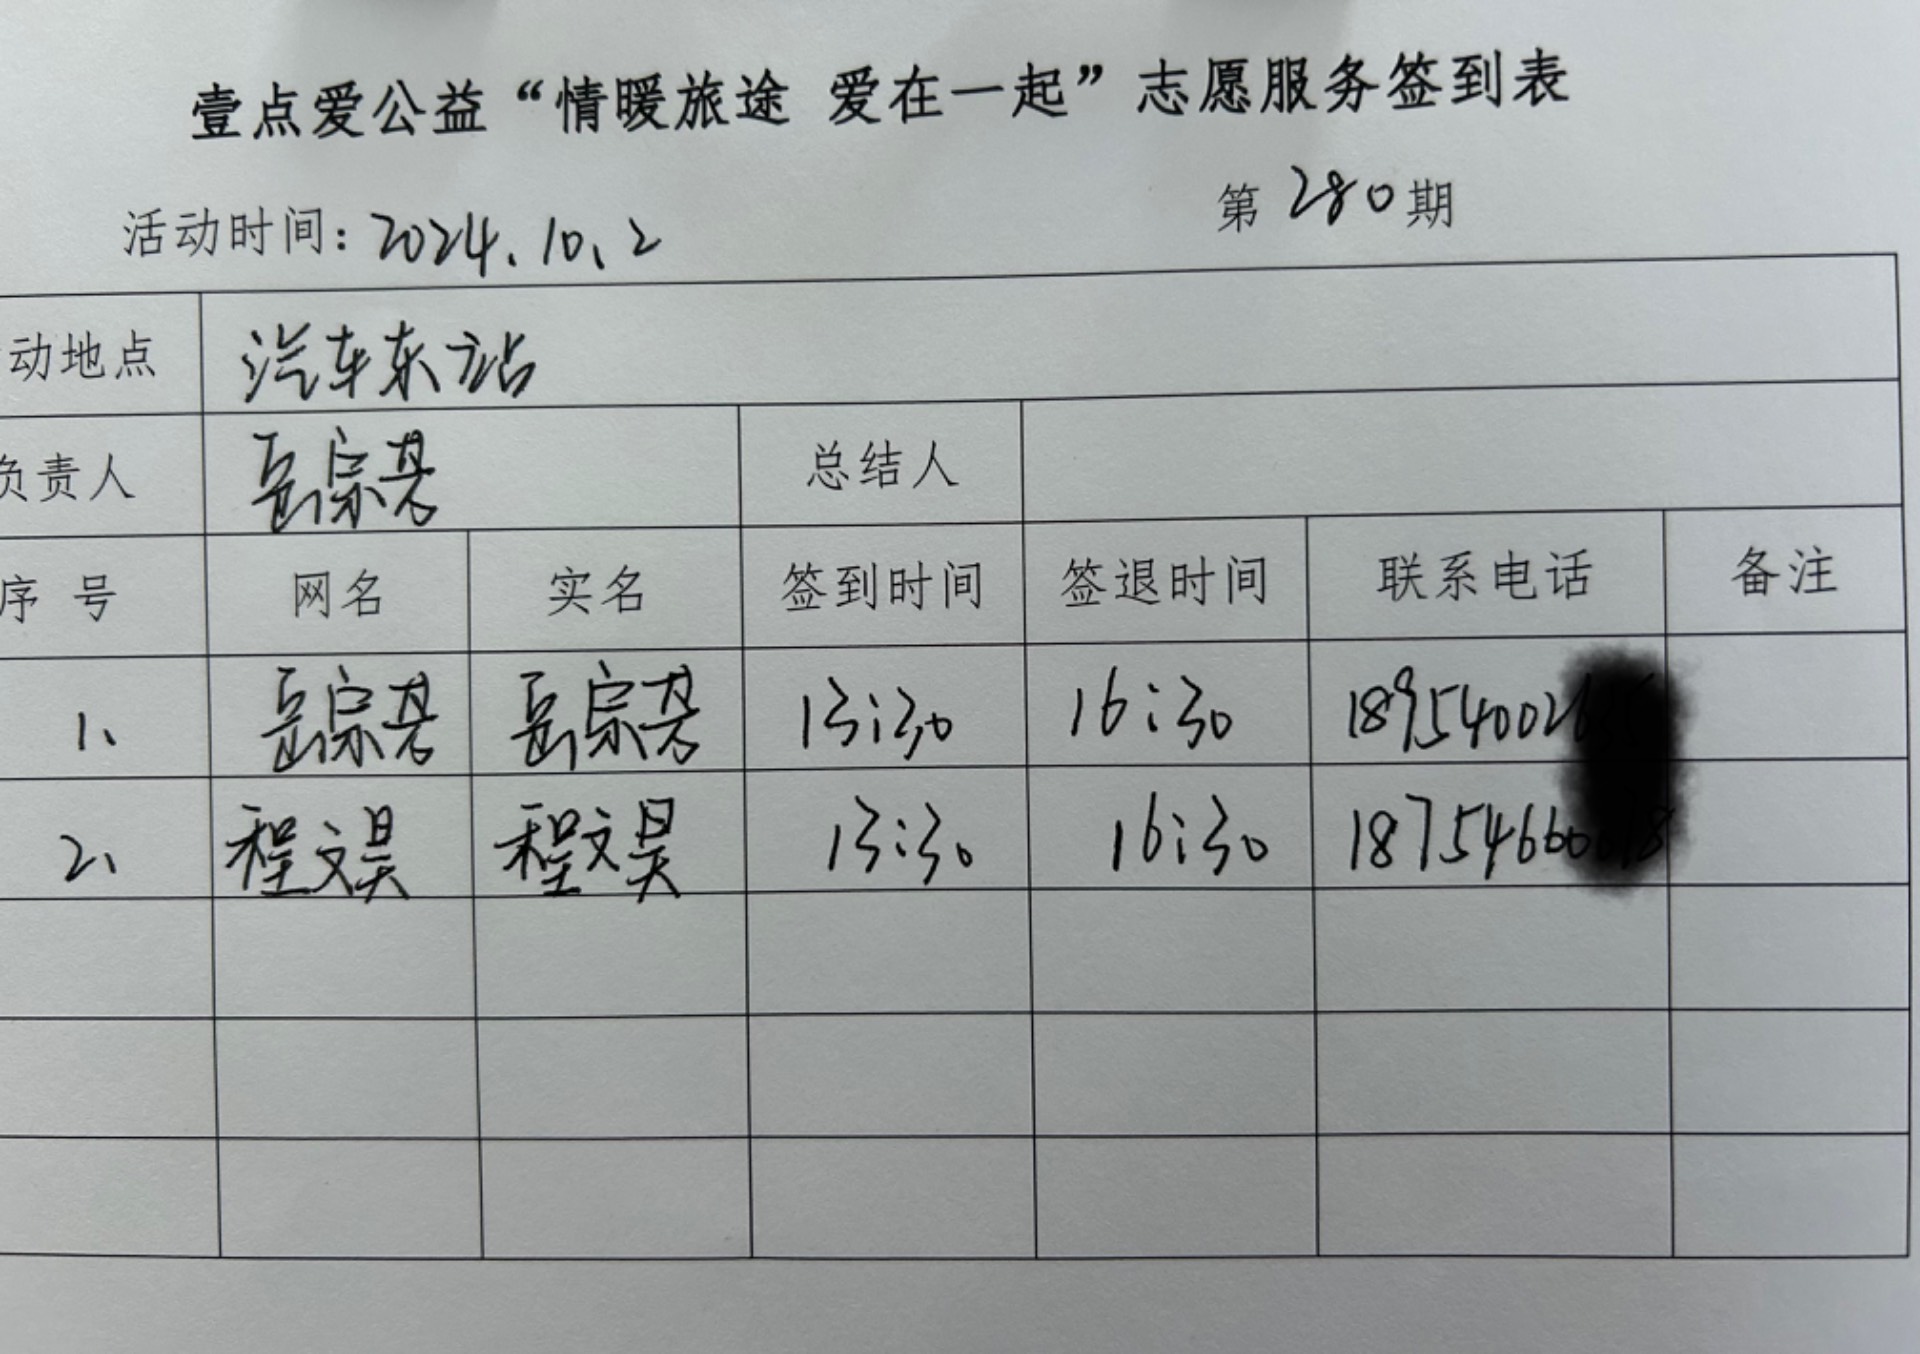 壹点爱公益“情暖旅途 爱在一起”志愿服务签到表
活动时间：2024.10.2 第280期
动地点 汽车东站
负责人 岳宗 总结人
序号 网名 实名 签到时间 签退时间 联系电话 备注
1、 岳宗 岳宗 13:30 16:30 189540026
2、 程文昊 程文昊 13:30 16:30 187546600